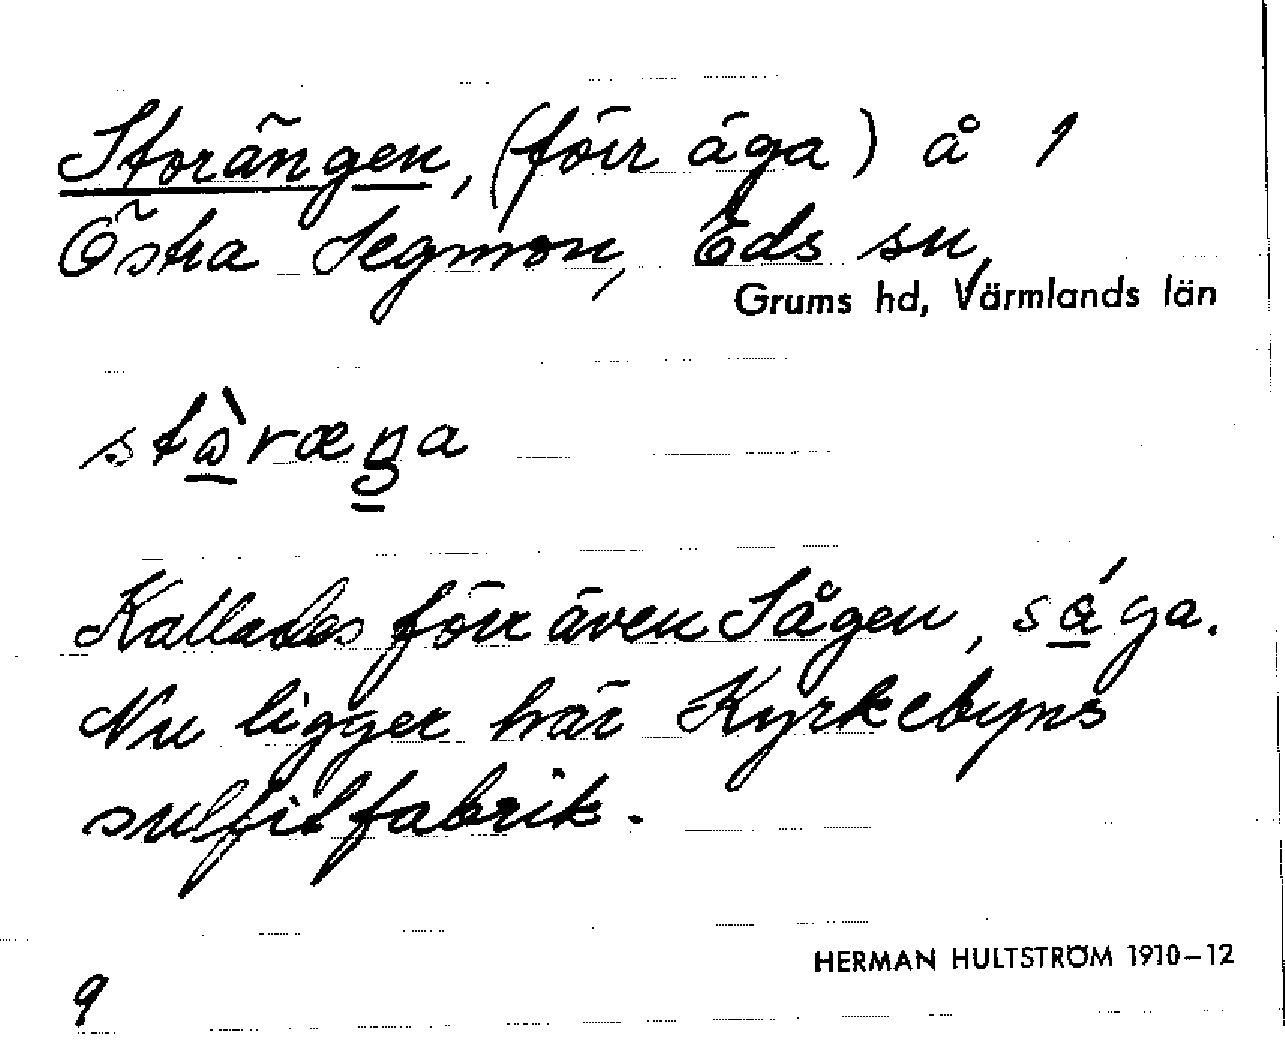 Storängen, (förr äga) å 1
Östra Segmon, Eds sn,
Grums hd, Värmlands län
stɷ̀ræŋa
Kallades förr även Sågen, sága.
Nu ligger här Kyrkebyns
sulfitfabrik.
HERMAN HULTSTRÖM 1910–12
9